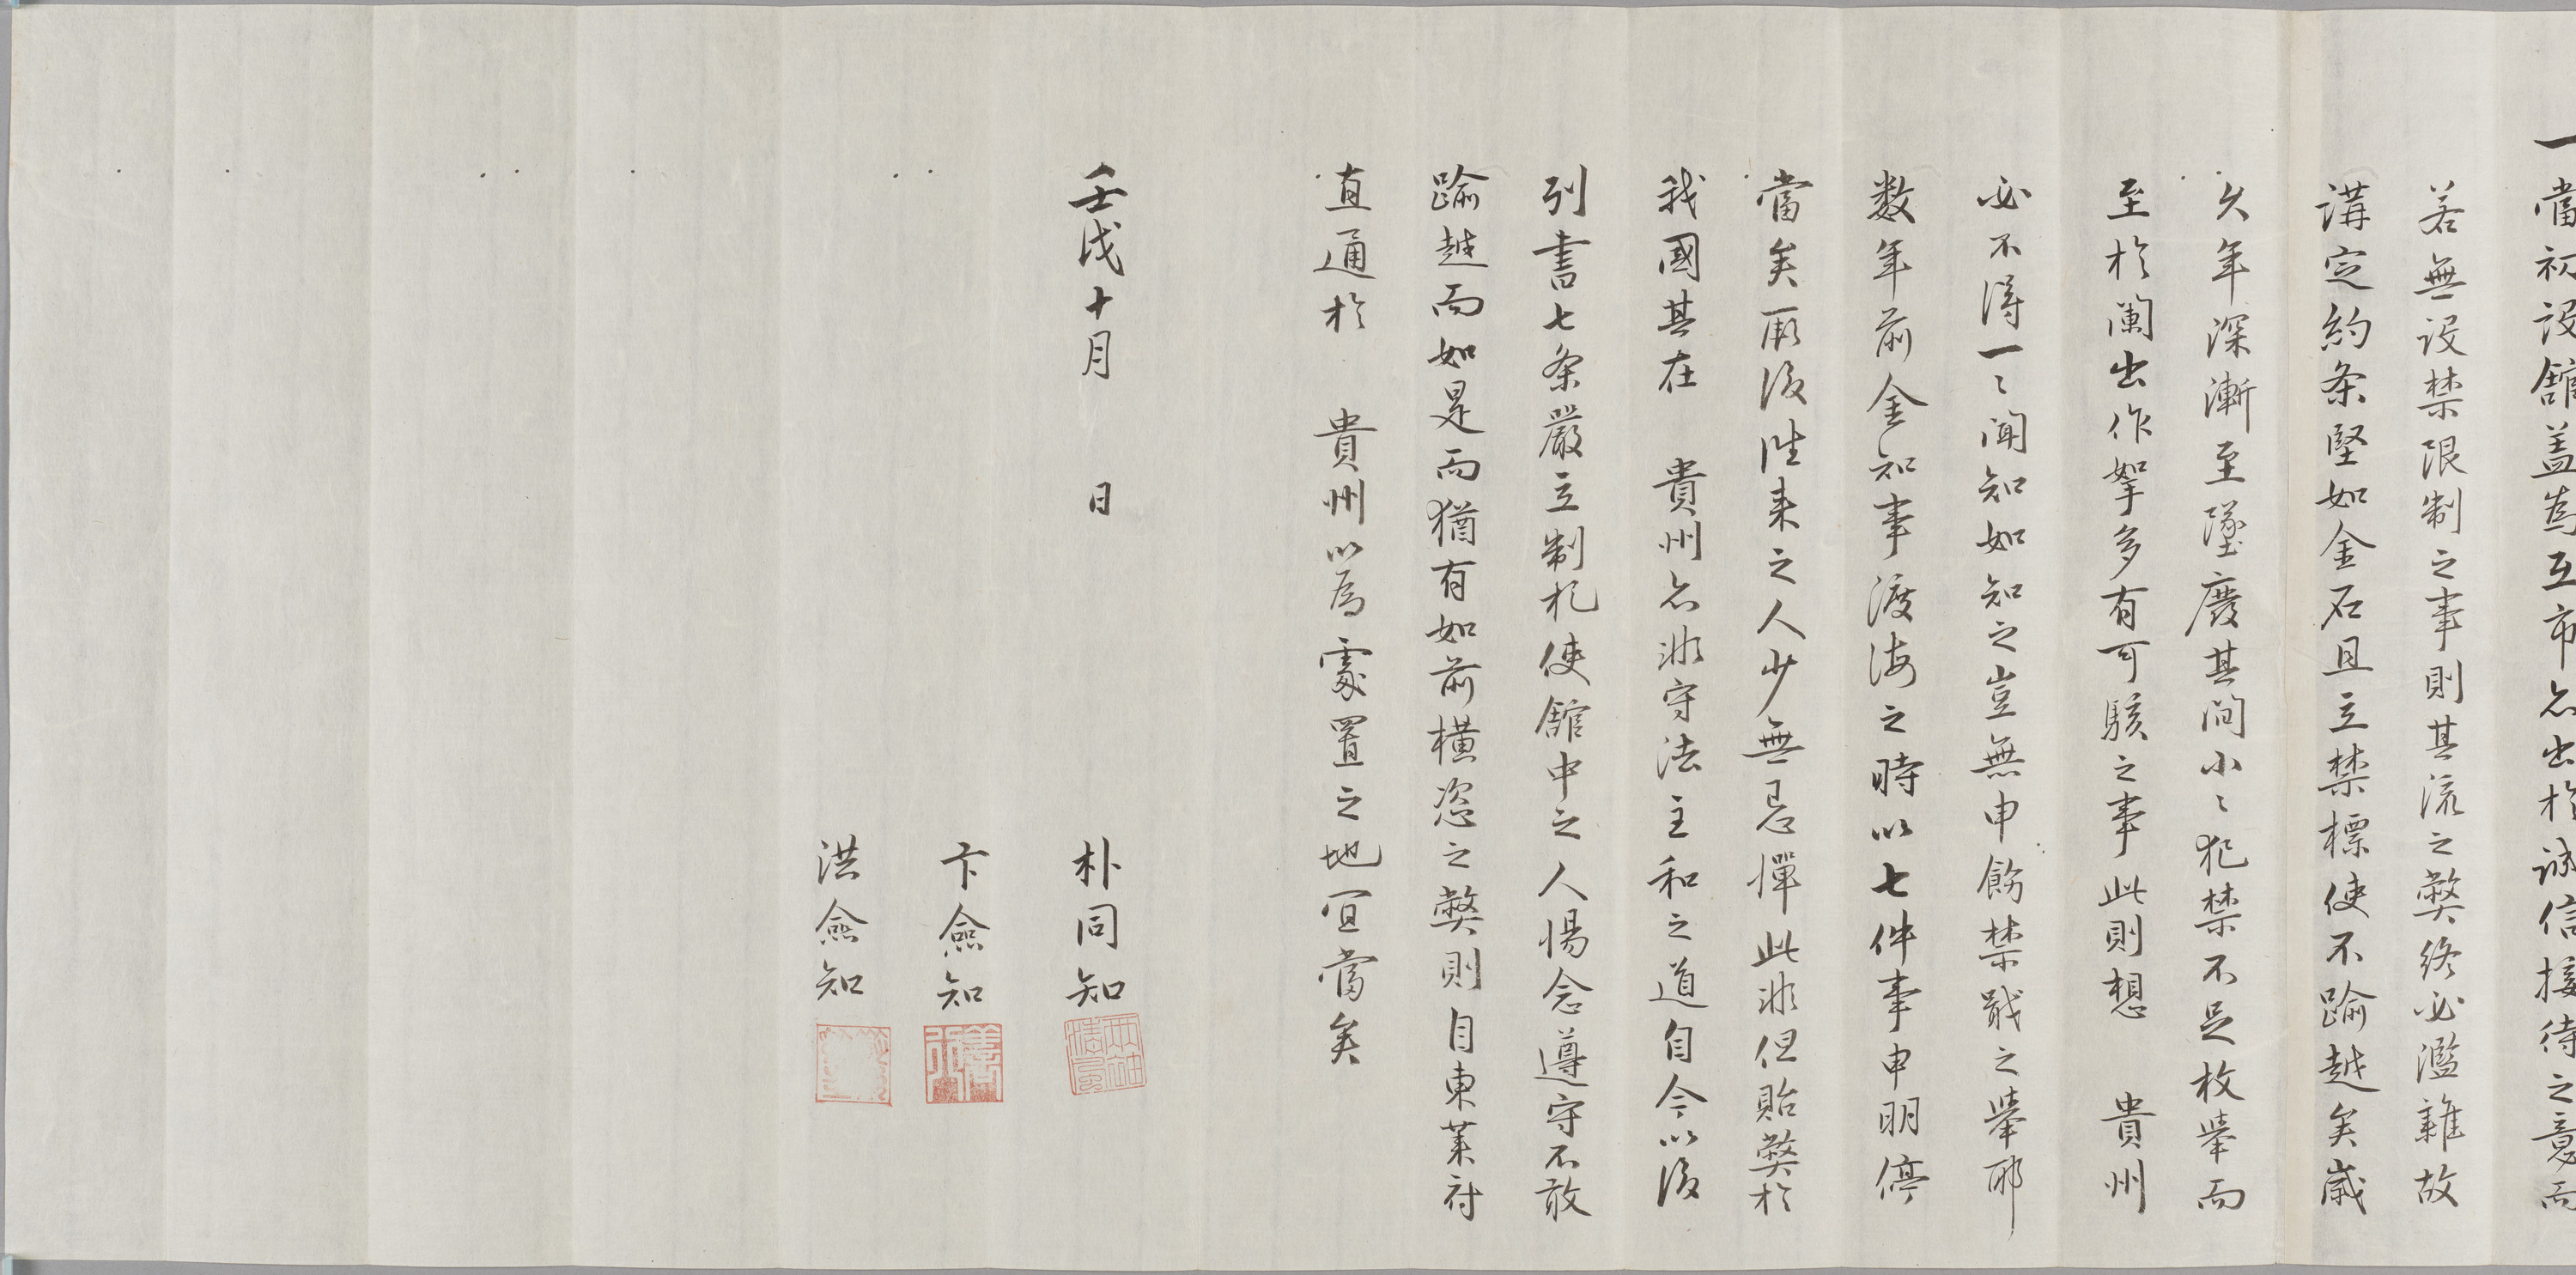 一當初設館盖為互市亦出於誠信接待之意而
若無設禁限制之事則其流之弊終必濫雜故
講定約条堅如金石且立禁標使不踰越矣歳
久年深漸至墜廢其間小〻犯禁不足枚擧而
至於闌出作拏多有可駭之事此則想 貴州
必不得一〻聞知如知之豈無申飭禁戢之擧耶
数年前金知事渡海之時以七件事申明停
當矣厥後徃来之人少無忌憚此非但貽弊於
我國其在 貴州亦非守法主和之道自今以後
列書七条嚴立制札使舘中之人惕念遵守不敢
踰越而如是而猶有如前横恣之弊則自東莱府
直通於 貴州以為處置之地宜當矣
壬戌十月 日
朴同知
卞僉知
洪僉知